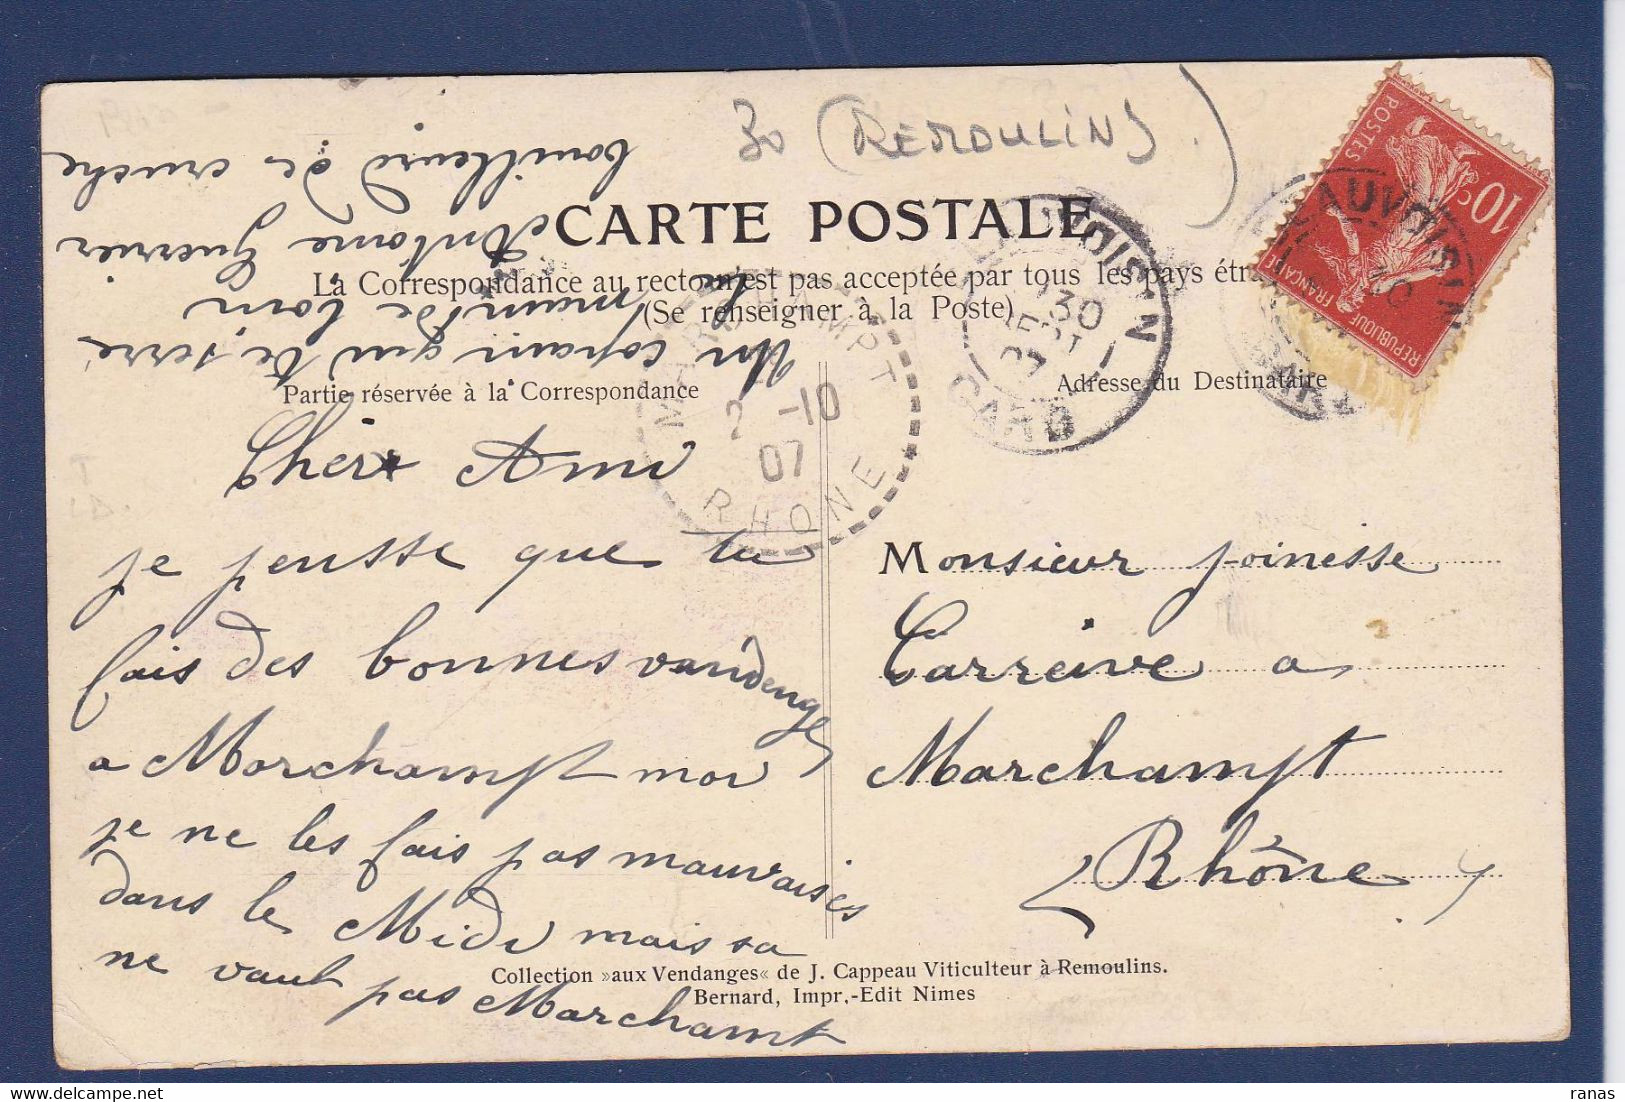 30 (REMOULINS)
CARTE POSTALE
La Correspondance au recto n'est pas acceptée par tous les pays étra
(Se renseigner à la Poste)
Partie réservée à la Correspondance
Adresse du Destinataire
10c
POSTES
REPUBLIQUE FRANÇAISE
AUVOISIN
30
SEPT
07
GARD
MARCHAMPT
2 -10
07
RHONE
Cher Ami
je pensse que tu
fais des bonnes vandenges
a Marchampt moi
je ne les fais pas mauvaises
dans le Midi mais sa
ne vaut pas Marchamt
Un copain qui te serre
la main de loin
Antoine Guerrier
bouilleurs de cruche
Monsieur Joinesse
Carreive a
Marchampt
(Rhône)
Collection »aux Vendanges« de J. Cappeau Viticulteur à Remoulins.
Bernard, Impr.-Edit Nimes
ranas